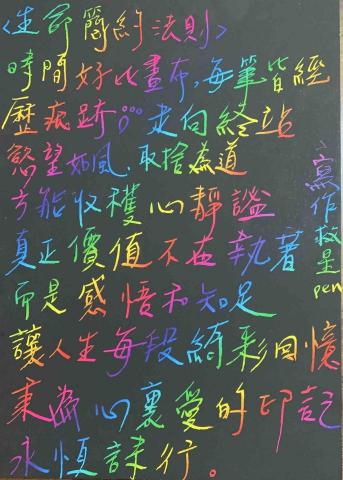 <生命簡約法則>
時間好比畫布,每筆皆經
歷痕跡。。。走向終站
慾望如風,取捨為道
方能收穫心靜謐
真正價值不在執著
而是感悟和知足
讓人生每段綺彩回憶
秉為心裏愛的印記
永恆詠行。
~寫作救星pen